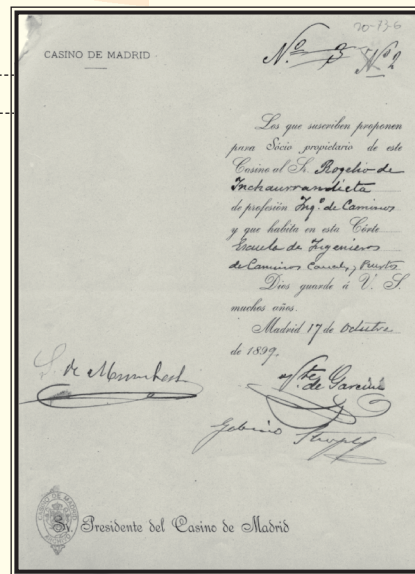 20-736
CASINO DE MADRID
Nº 3 Nº 2
Los que suscriben proponen
para Sócio propietario de este
Casino al Sr. Rogelio de
Inchaurrandieta
de profesión Ingº. de Caminos
y que habita en esta Córte
Escuela de Ingenieros
de Caminos Canales y Puertos
Dios guarde á V. S.
muchos años.
Madrid 17 de Octubre
de 1899.
de
de Garcini
Gabino
CASINO DE MADRID
Sr. Presidente del Casino de Madrid